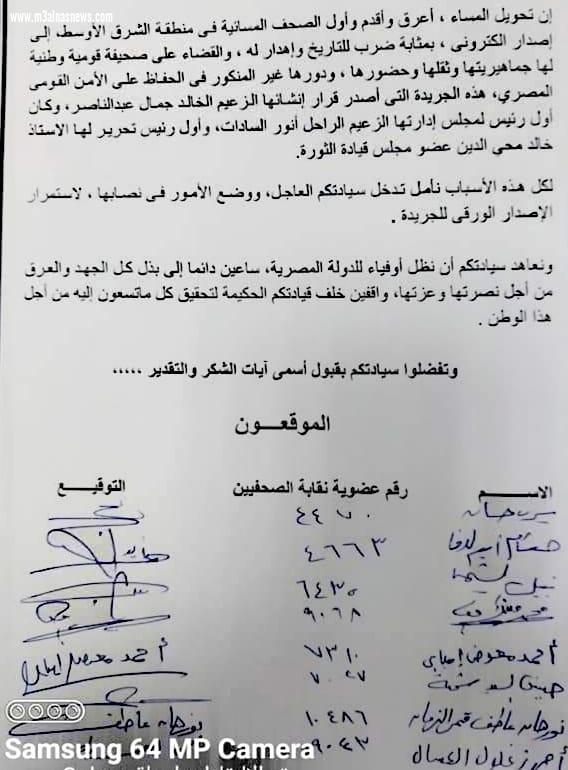 www.m3alnasnews.com
إن تحويل المساء ، أعرق وأقدم وأول الصحف المسائية فى منطقة الشرق الأوسط، إلى
إصدار الكترونى ، بمثابة ضرب للتاريخ وإهدار له ، والقضاء على صحيفة قومية وطنية
لها جماهيريتها وثقلها وحضورها ، ودورها غير المنكور فى الحفاظ على الأمن القومى
المصري، هذه الجريدة التى أصدر قرار إنشائها الزعيم الخالد جمال عبدالناصر، وكان
أول رئيس لمجلس إدارتها الزعيم الراحل أنور السادات، وأول رئيس تحرير لها الاستاذ
خالد محي الدين عضو مجلس قيادة الثورة.
لكل هذه الأسباب نأمل تدخل سيادتكم العاجل، ووضع الأمور فى نصابها ، لاستمرار
الإصدار الورقى للجريدة .
ونعاهد سيادتكم أن نظل أوفياء للدولة المصرية، ساعين دائما إلى بذل كل الجهد والعرق
من أجل نصرتها وعزتها، واقفين خلف قيادتكم الحكيمة لتحقيق كل ماتسعون إليه من أجل
هذا الوطن .
وتفضلوا سيادتكم بقبول أسمى آيات الشكر والتقدير .....
الموقعون
الاسم رقم عضوية نقابة الصحفيين التوقيع
٤٤٧٠
هشام ٤٦٦٣
نبيل ٦٤٣٥
٩٠٦٨
أحمد معوض إمبابى ٧٣١٠ أحمد معوض
٧٠٢٧
نورهان عاطف قمر الزمان ١٠٤٨٦ نورهان عاطف
أحمد زغلول العسال ٩٠٤٣
Samsung 64 MP Camera